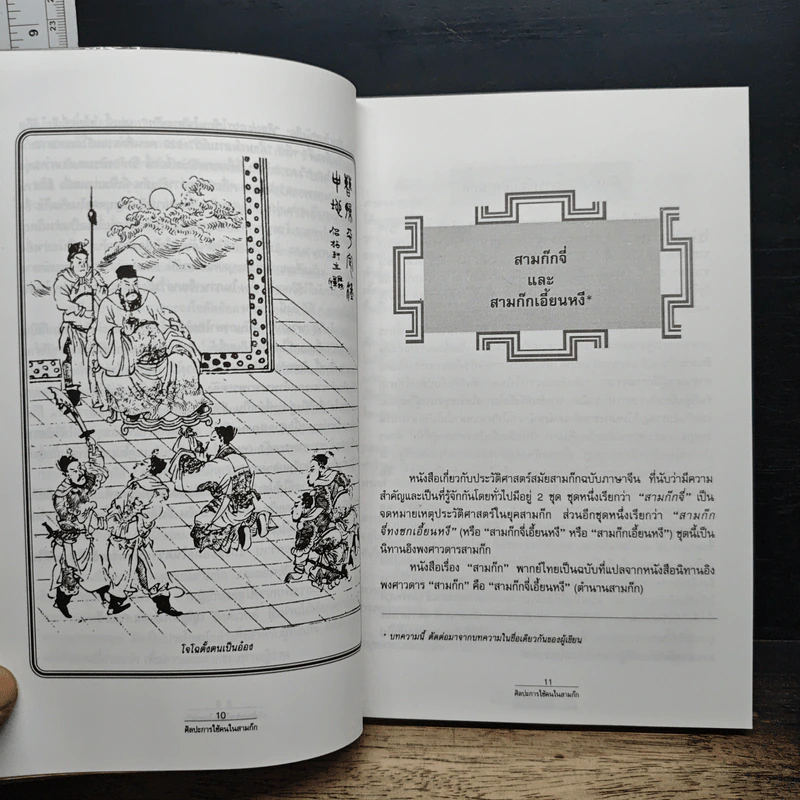 9
23
โจโฉตั้งตนเป็นอ๋อง
10
ศิลปะการใช้คนในสามก๊ก
สามก๊กจี่
และ
สามก๊กเอี้ยนหงี*
หนังสือเกี่ยวกับประวัติศาสตร์สมัยสามก๊กฉบับภาษาจีน ที่นับว่ามีความ
สำคัญและเป็นที่รู้จักกันโดยทั่วไปมีอยู่ 2 ชุด ชุดหนึ่งเรียกว่า “สามก๊กจี่” เป็น
จดหมายเหตุประวัติศาสตร์ในยุคสามก๊ก ส่วนอีกชุดหนึ่งเรียกว่า “สามก๊ก
จี่ทงซกเอี้ยนหงี” (หรือ “สามก๊กจี่เอี้ยนหงี” หรือ “สามก๊กเอี้ยนหงี”) ชุดนี้เป็น
นิทานอิงพงศาวดารสามก๊ก
หนังสือเรื่อง “สามก๊ก” พากย์ไทยเป็นฉบับที่แปลจากหนังสือนิทานอิง
พงศาวดาร “สามก๊ก” คือ “สามก๊กจี่เอี้ยนหงี” (ตำนานสามก๊ก)
* บทความนี้ ตัดต่อมาจากบทความในชื่อเดียวกันของผู้เขียน
11
ศิลปะการใช้คนในสามก๊ก